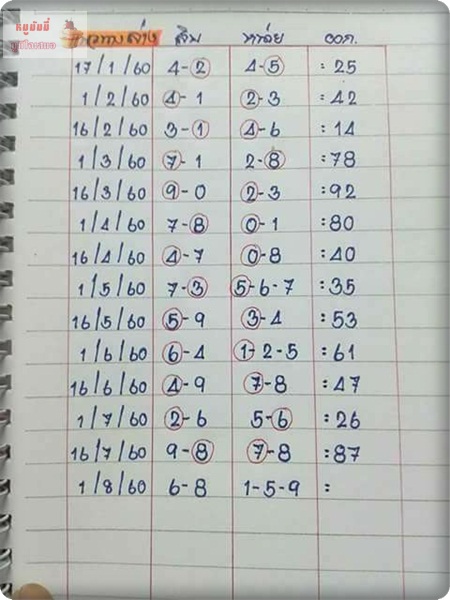 หมูยันยี่
# ความล่าง สิบ หน่อย ออก.
17/1/60 4-2 4-5 :25
1/2/60 4-1 2-3 :42
16/2/60 3-1 4-6 :14
1/3/60 7-1 2-8 :78
16/3/60 9-0 2-3 :92
1/4/60 7-8 0-1 :80
16/4/60 4-7 0-8 :40
1/5/60 7-3 5-6-7 :35
16/5/60 5-9 3-4 :53
1/6/60 6-4 1-2-5 :61
16/6/60 4-9 7-8 :47
1/7/60 2-6 5-6 :26
16/7/60 9-8 7-8 :87
1/8/60 6-8 1-5-9 :